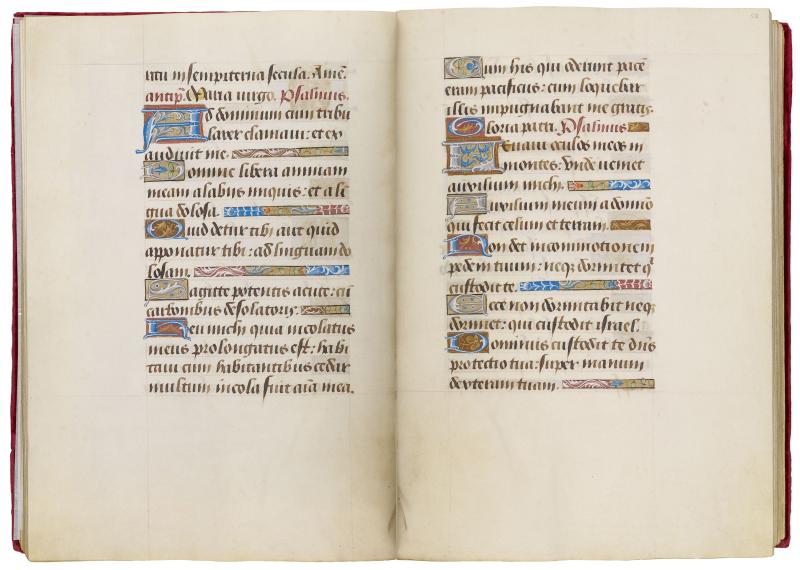 in sempiterna secula. Amē.
antip̄. Maria virgo. Psalmus.
Ad dominum cum tribu
larer clamaui: et ex
audiuit me.
Domine libera animam
meam a labiis iniquis: et a li
gua dolosa.
Quid detur tibi aut quid
apponatur tibi: ad linguam do
losam.
Sagitte potentis acute: cū
carbonibus desolatoriis.
Heu michi quia incolatus
meus prolongatus est: habi
taui cum habitantibus cedar
multum incola fuit aīa mea.
Cum his qui oderunt pacē
eram pacificus: cum loquebar
illis impugnabant me gratis.
Gloria patri. Psalmus
Leuaui oculos meos in
montes: vnde veniet
auxilium michi.
Auxilium meum a domino
qui fecit celum et terram.
Non det in commotionem
pedem tuum: neqꝫ dormitet qͥ
custodit te.
Ecce non dormitabit neqꝫ
dormiet: qui custodit israel.
Dominus custodit te dn̄s
protectio tua: super manum
dexteram tuam.